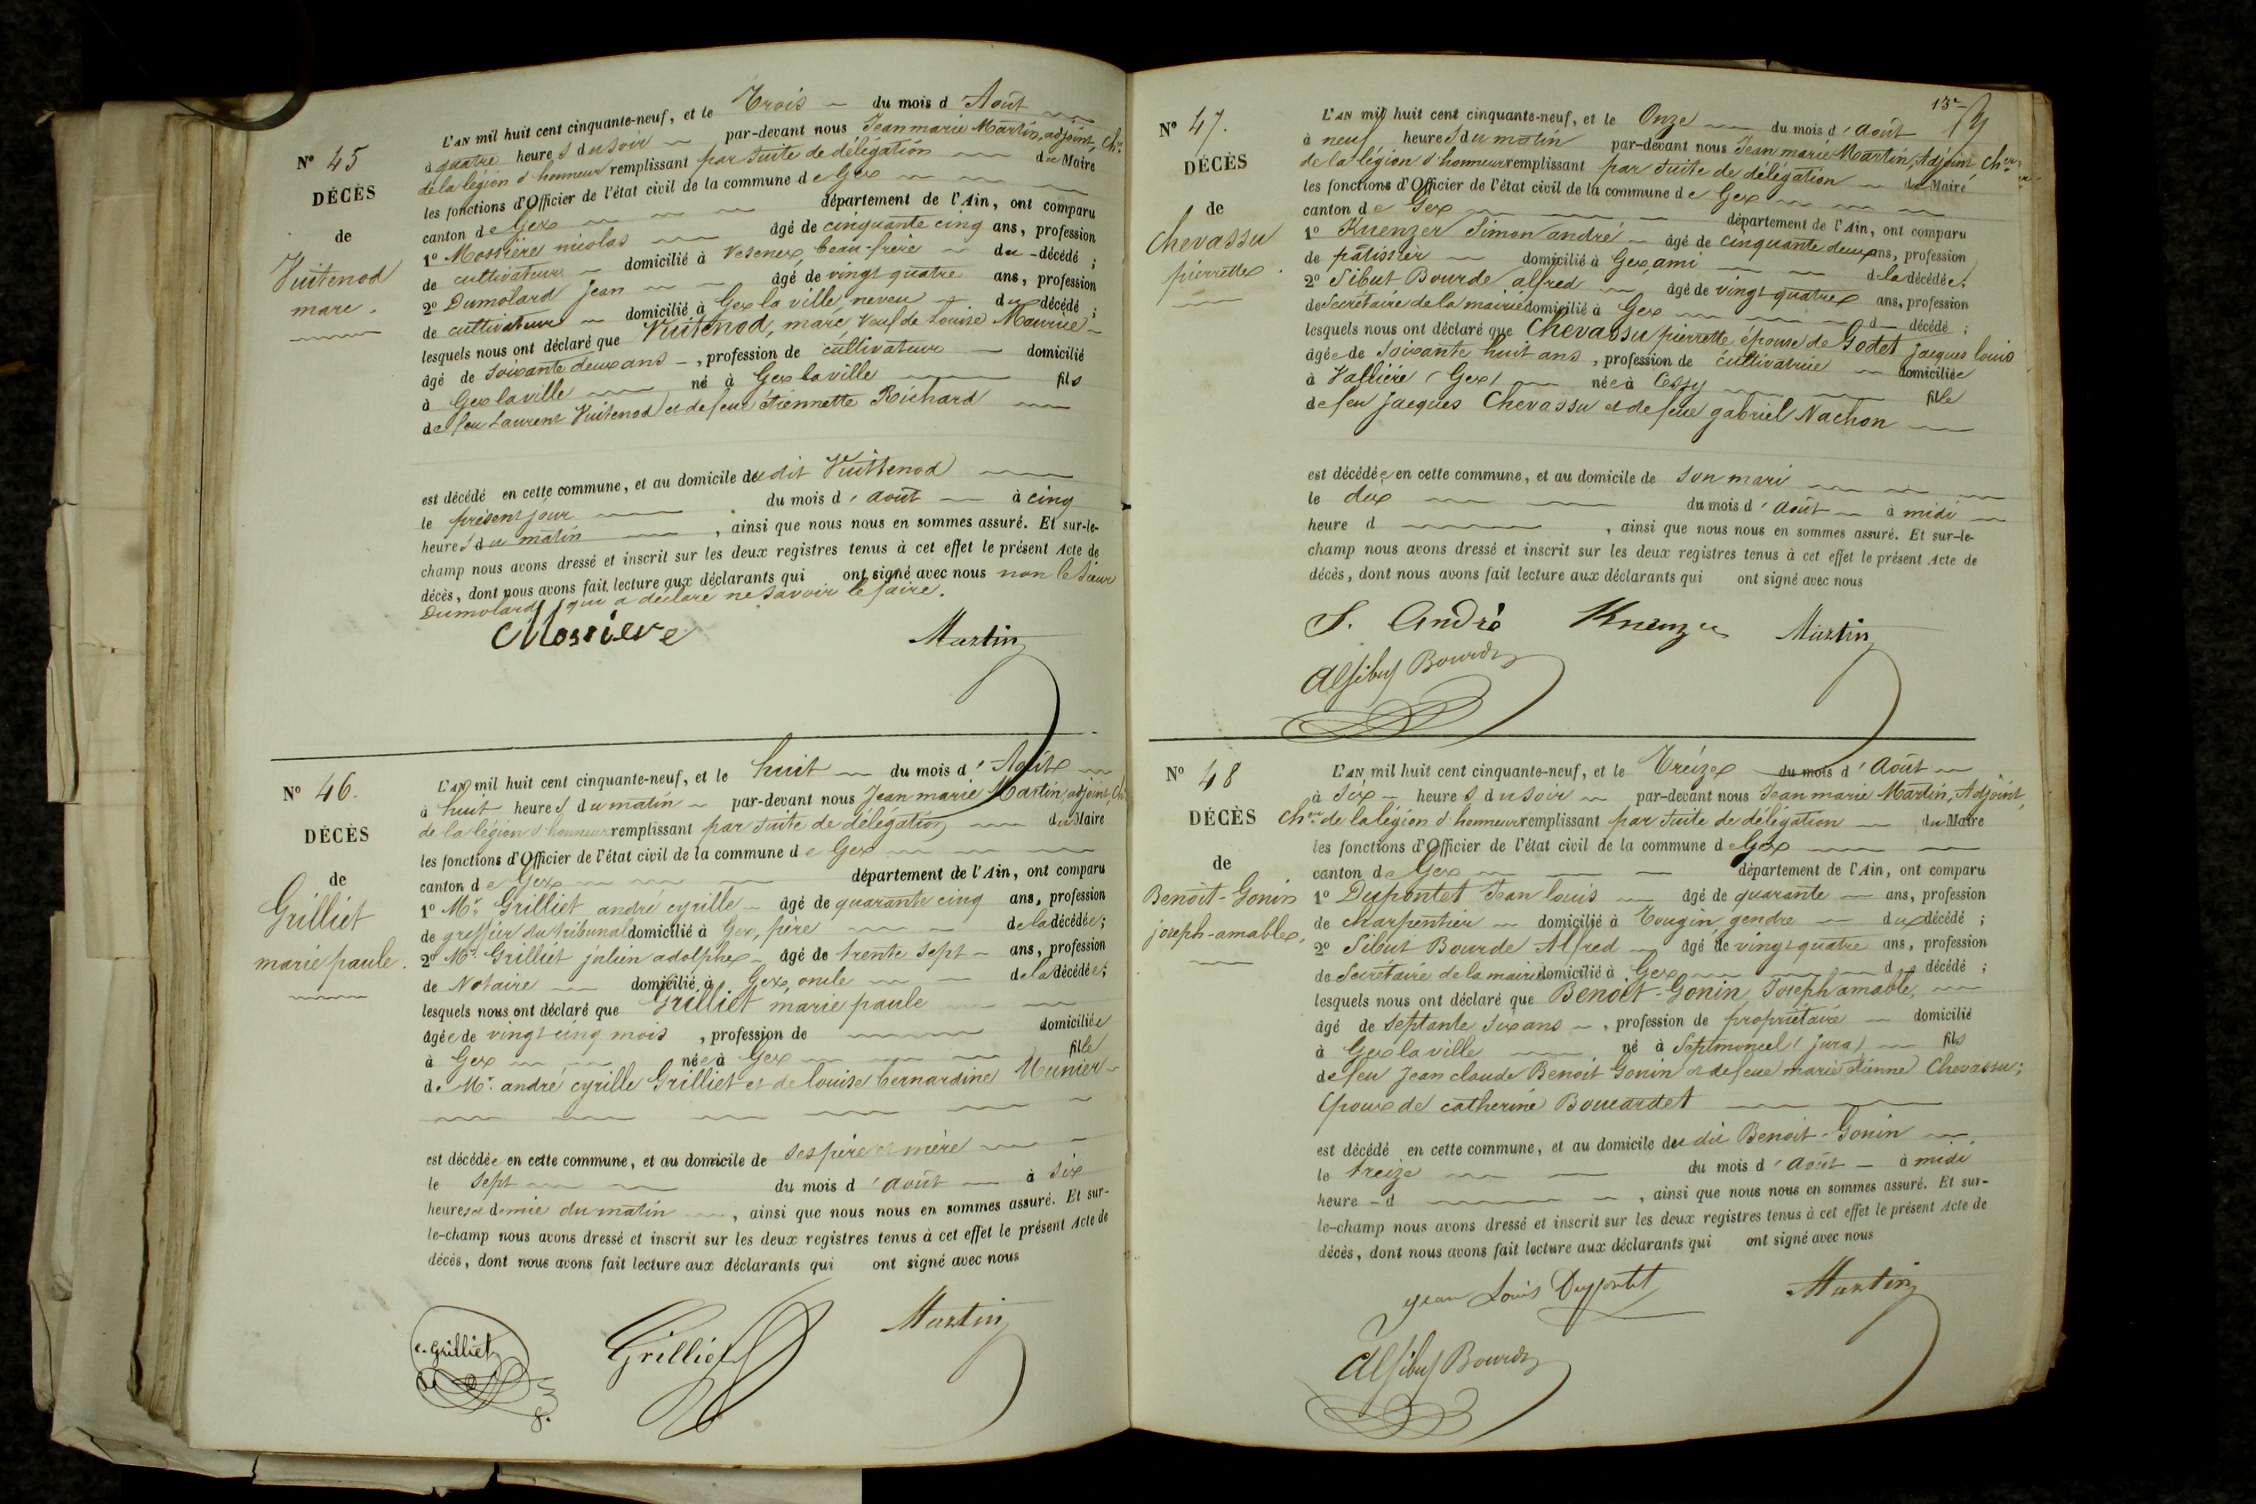 N° 45
DÉCÈS
de
Vuitenod
marc.
L'AN mil huit cent cinquante-neuf, et le Trois du mois d Août
à quatre heures du soir par-devant nous Jean marie Martin, adjoint, Cher
de la légion d'honneur remplissant par suite de délégation du Maire
les fonctions d'Officier de l'état civil de la commune de Gex
canton de Gex département de l'Ain, ont comparu
1° Mossière nicolas âgé de cinquante cinq ans, profession
de cultivateur domicilié à Vesenex, beau-frère du décédé ;
2° Dumolard Jean âgé de vingt quatre ans, profession
de cultivateur domicilié à Gex la ville, neveu du décédé ;
lesquels nous ont déclaré que Vuitenod, marc, Veuf de Louise Maurue
âgé de soixante deux ans, profession de cultivateur domicilié
à Gex la ville né à Gex la ville fils
de feu Laurent Vuitenod et de feue Étiennette Richard
est décédé en cette commune, et au domicile du dit Vuittenod
le présent jour du mois d'août à cinq
heures du matin, ainsi que nous nous en sommes assuré. Et sur-le-
champ nous avons dressé et inscrit sur les deux registres tenus à cet effet le présent Acte de
décès, dont nous avons fait lecture aux déclarants qui ont signé avec nous non le Sieur
Dumolard, qui a déclaré ne savoir le faire.
Mossiere Martin
N° 46.
DÉCÈS
de
Grilliet
marie paule.
L'AN mil huit cent cinquante-neuf, et le huit du mois d'Août
à huit heures du matin par-devant nous Jean marie Martin, adjoint, Ch
de la légion d'honneur remplissant par suite de délégation du Maire
les fonctions d'Officier de l'état civil de la commune de Gex
canton de Gex département de l'Ain, ont comparu
1° Mr Grilliet andré cyrille âgé de quarante cinq ans, profession
de greffier du tribunal domicilié à Gex, père de la décédée ;
2° Mr Grilliet julien adolphe âgé de trente sept ans, profession
de Notaire domicilié à Gex, oncle de la décédée ;
lesquels nous ont déclaré que Grilliet marie paule
âgée de vingt cinq mois, profession de domiciliée
à Gex née à Gex fille
de Mr. andré cyrille Grilliet et de louise bernardine Munier
est décédée en cette commune, et au domicile de ses père et mère
le sept du mois d'août à six
heures et demie du matin, ainsi que nous nous en sommes assuré. Et sur-
le-champ nous avons dressé et inscrit sur les deux registres tenus à cet effet le présent Acte de
décès, dont nous avons fait lecture aux déclarants qui ont signé avec nous
c. grilliet Grilliet Martin
13e
N° 47.
DÉCÈS
de
Chevassu
pierrette.
L'AN mil huit cent cinquante-neuf, et le Onze du mois d'août
à neuf heures du matin par-devant nous Jean marie Martin, Adjoint, Cher
de la légion d'honneur remplissant par suite de délégation du Maire
les fonctions d'Officier de l'état civil de la commune de Gex
canton de Gex département de l'Ain, ont comparu
1° Kuenzer Simon andré âgé de cinquante deux ans, profession
de pâtissier domicilié à Gex, ami de la décédée.
2° Sibut Bourde alfred âgé de vingt quatre ans, profession
de Secrétaire de la mairie domicilié à Gex d décédé ;
lesquels nous ont déclaré que Chevassu pierrette épouse de Godet jacques louis
âgée de soixante huit ans, profession de cultivatrice domiciliée
à Vallière (Gex) née à Cessy fille
de feu jacques Chevassu et de feue gabriel Nachon
est décédée en cette commune, et au domicile de son mari
le dix du mois d'août à midi
heure d, ainsi que nous nous en sommes assuré. Et sur-le-
champ nous avons dressé et inscrit sur les deux registres tenus à cet effet le présent Acte de
décès, dont nous avons fait lecture aux déclarants qui ont signé avec nous
S. André Kuenzer Martin
Alf Sibut Bourde
N° 48
DÉCÈS
de
Benoit-Gonin
joseph-amable,
L'AN mil huit cent cinquante-neuf, et le Treize du mois d'Août
à six heures du soir par-devant nous Jean marie Martin, Adjoint,
Cher de la légion d'honneur remplissant par suite de délégation du Maire
les fonctions d'Officier de l'état civil de la commune de Gex
canton de Gex département de l'Ain, ont comparu
1° Dupontet Jean louis âgé de quarante ans, profession
de charpentier domicilié à Tougin, gendre du décédé ;
2° Sibut Bourde Alfred âgé de vingt quatre ans, profession
de Secrétaire de la mairie domicilié à Gex d décédé ;
lesquels nous ont déclaré que Benoit-Gonin, Joseph amable,
âgé de septante six ans, profession de propriétaire domicilié
à Gex la ville né à Septmoncel (jura) fils
de feu Jean claude Benoit Gonin et de feue marie étienne Chevassu ;
Époux de catherine Boucardet
est décédé en cette commune, et au domicile du dit Benoit-Gonin
le treize du mois d'août à midi
heure d, ainsi que nous nous en sommes assuré. Et sur-
le-champ nous avons dressé et inscrit sur les deux registres tenus à cet effet le présent Acte de
décès, dont nous avons fait lecture aux déclarants qui ont signé avec nous
jean Louis Dupontet Martin
Alf Sibut Bourde